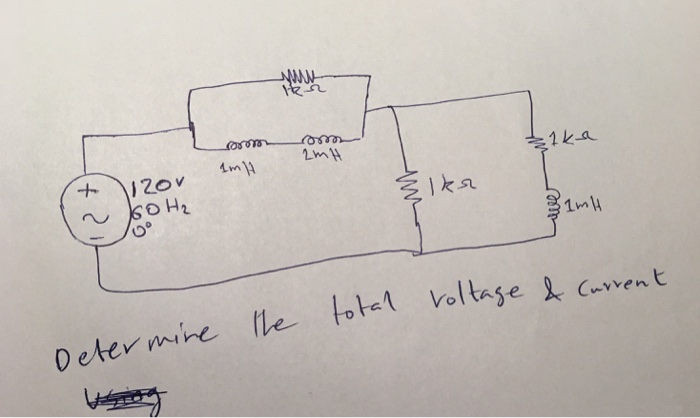 1kΩ
1mH
2mH
+
~
-
120V
60 Hz
0°
1kΩ
1kΩ
1mH
Determine the total voltage & current